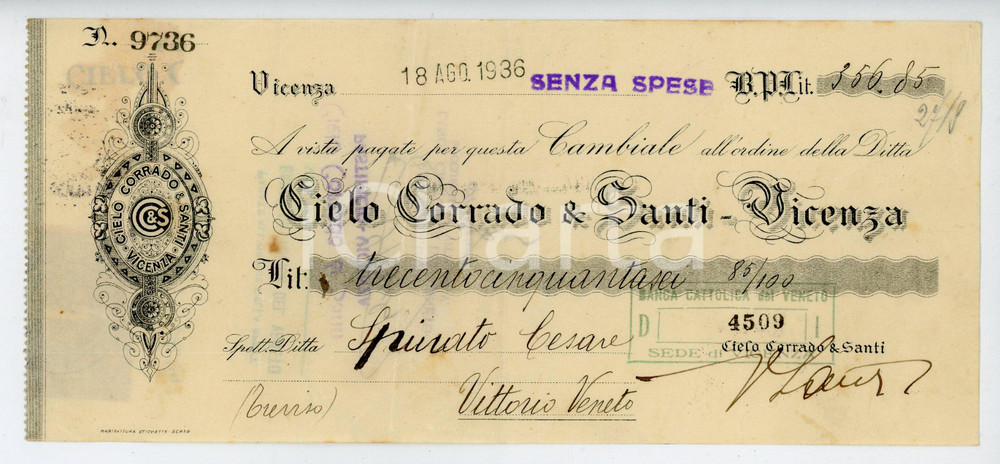 N. 9736
Vicenza 18 AGO. 1936 SENZA SPESE B.P.Lit. 356.85
27/8
A vista pagate per questa Cambiale all'ordine della Ditta
Cielo Corrado & Santi - Vicenza
Lit: trecentocinquantasei 85/100
BANCA CATTOLICA del VENETO
D 4509 I
Spett. Ditta Spinato Cesare Cielo Corrado & Santi
SEDE di VICENZA
(Treviso) Vittorio Veneto
CIELO CORRADO & SANTI
VICENZA
CC&S
Charta